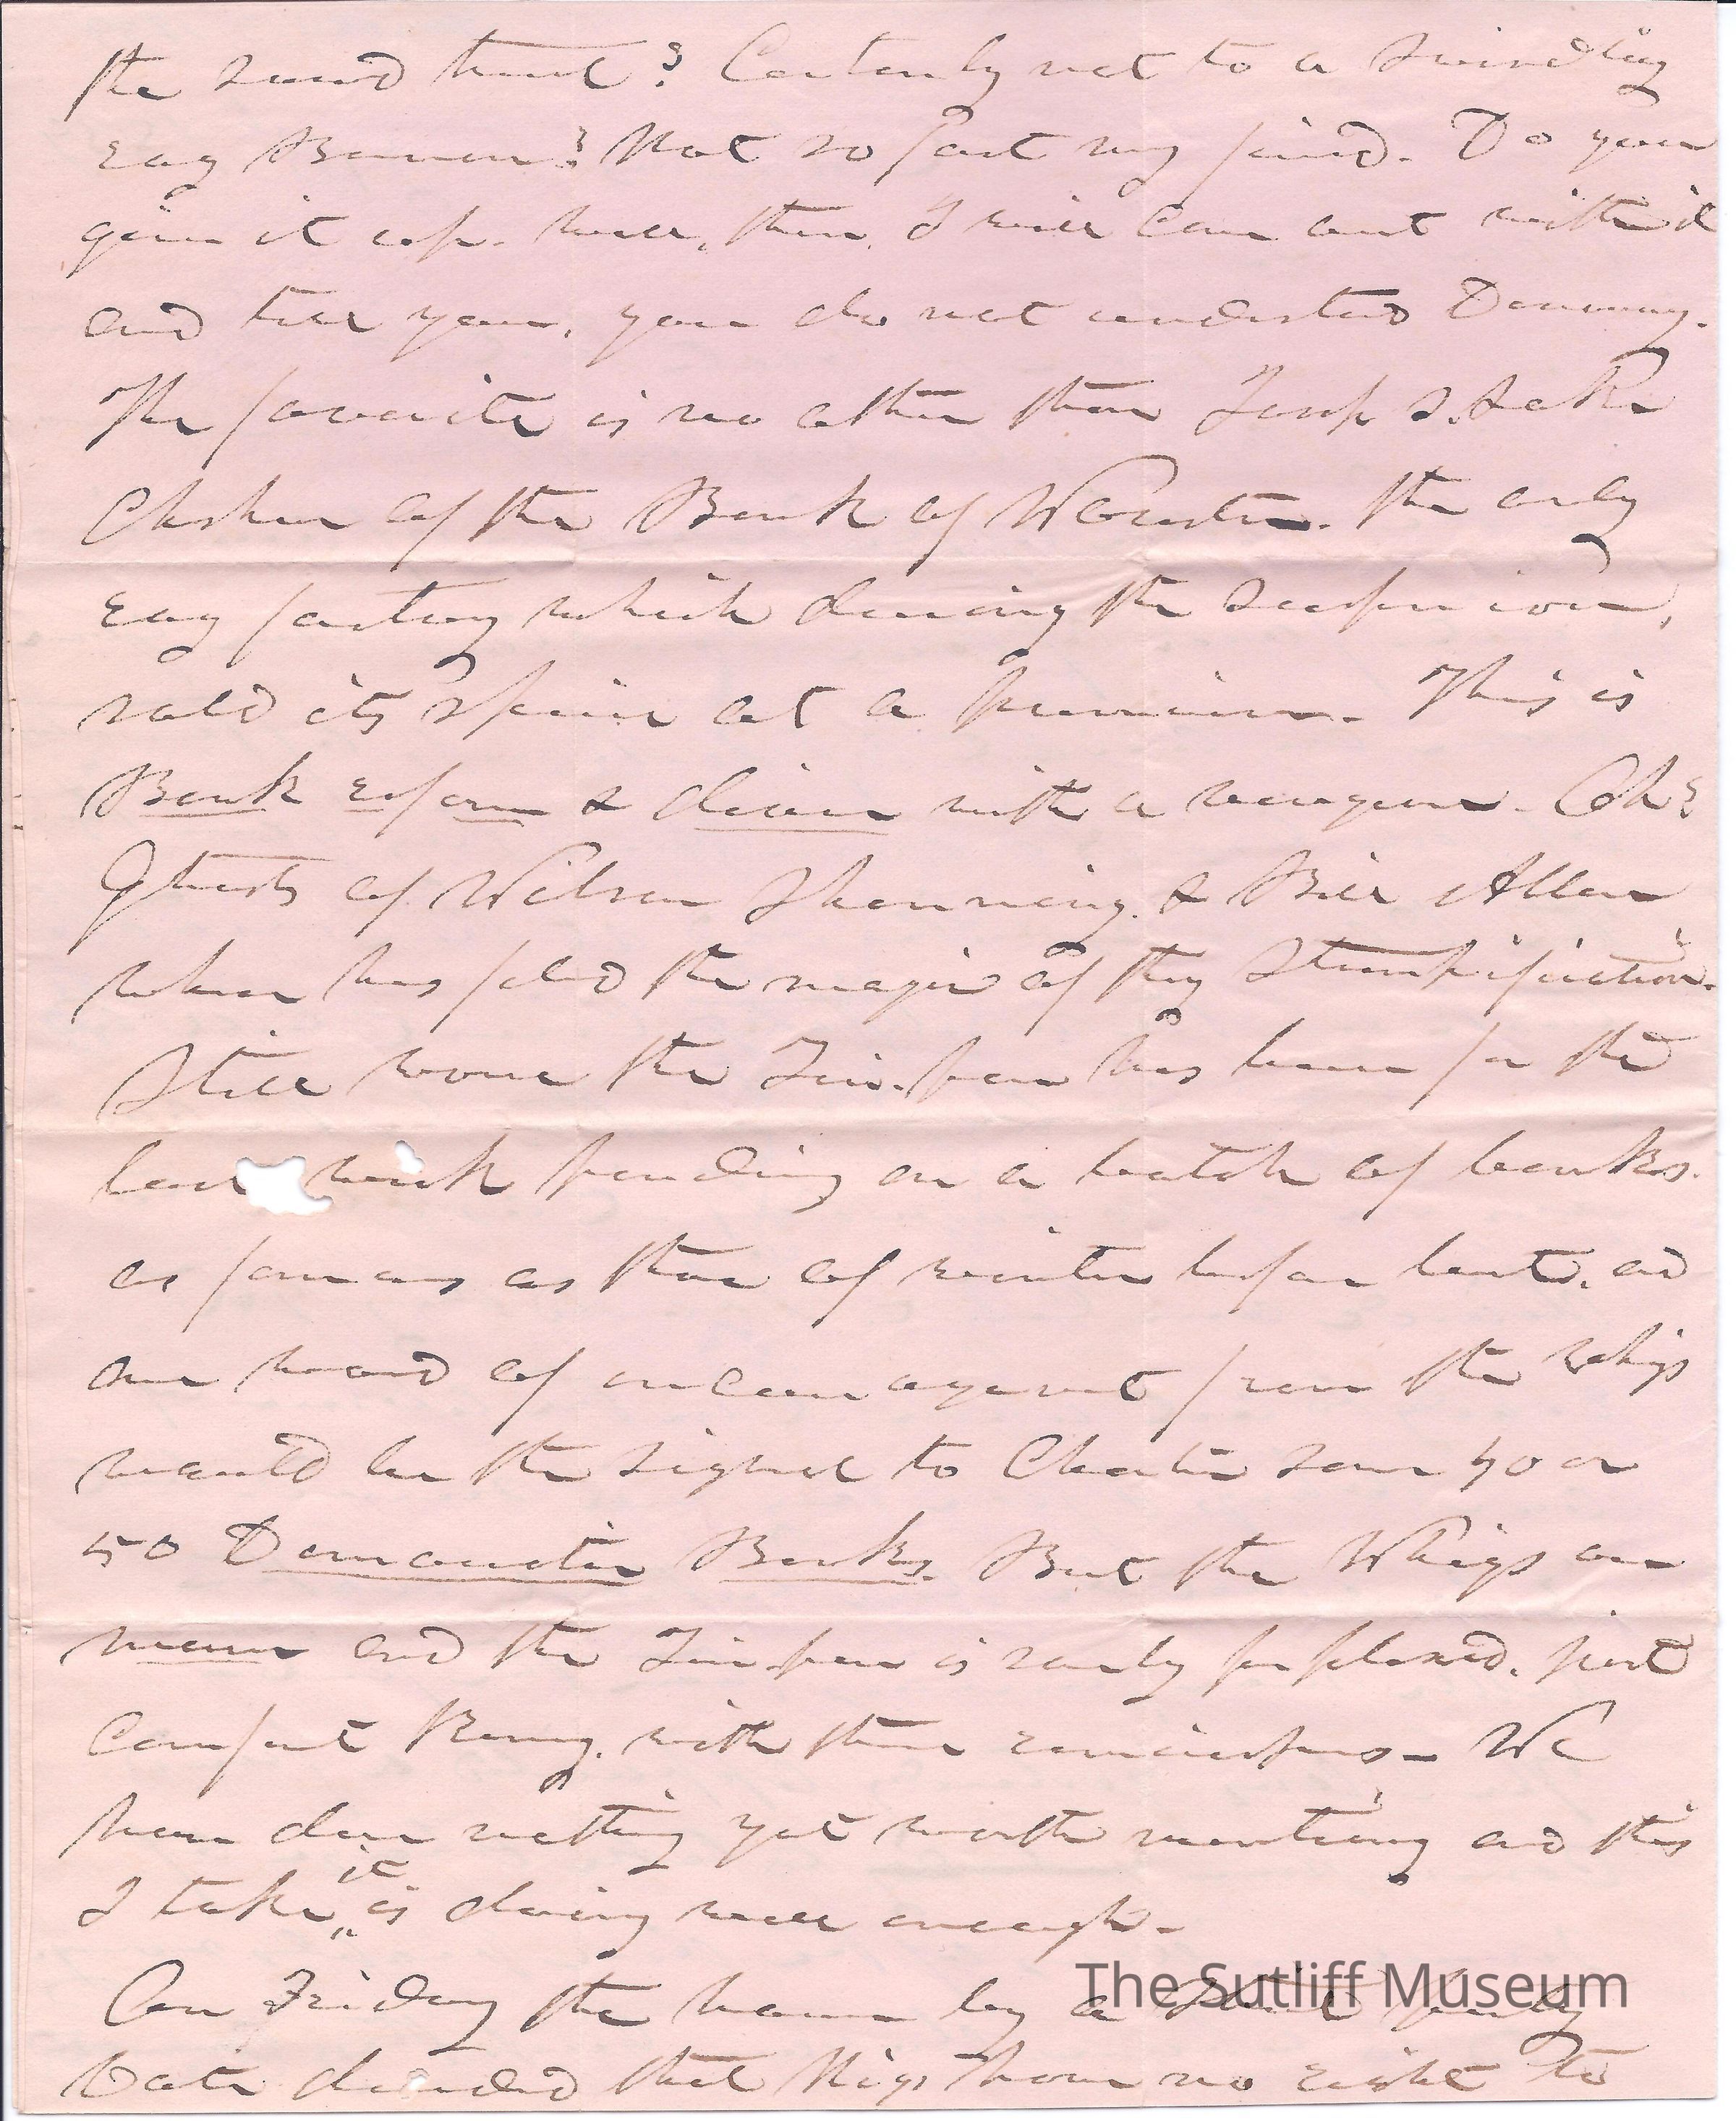 the sacred trust? Certainly not to a swindling
rag Baron? Not so fast my friend. Do you
give it up. Well, then, I will come out with it
and tell you, you do not understand Democracy.
The favorite is no other than Joseph S. Lake
Cashier of the Bank of Wooster. the only
rag factory which during the suspension,
sold its specie at a premium. This is
Bank reform & divorce with a vengeance. Oh!
Ghosts of Wilson Shannning & Bill Allen
where has fled the magic of thy Stumpification.
Still worse the Tin.pan has been for the
last week pending on a batch of banks.
as famous as those of winter before last. and
one word of encouragement from the Whigs
would be the signal to Charter some 40 or
50 Democratic Banks. But the Whigs are
mum and the Tin pan is sorely perplexed.
Comfort with these reminders. We
have done nothing yet worth mentioning and this
I take it is doing well enough.
On Friday the house by a party
vote decided that Nigs have no right to
The Sutliff Museum